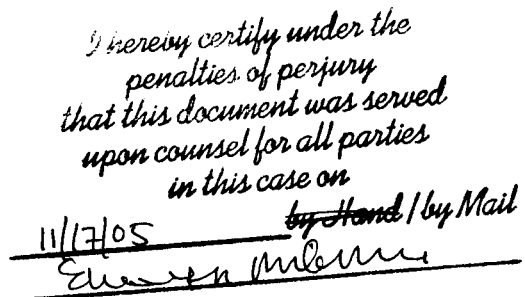 I hereby certify under the
penalties of perjury
that this document was served
upon counsel for all parties
in this case on
11/17/05 by Hand / by Mail